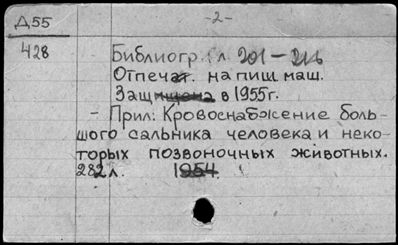 Д55
-2-
428
Библиогр. л 201-216
Отпечат. на пиш. маш.
Защищена в 1955г.
- Прил: Кровоснабжение боль-
шого сальника человека и неко-
торых позвоночных животных.
282л. 1954.